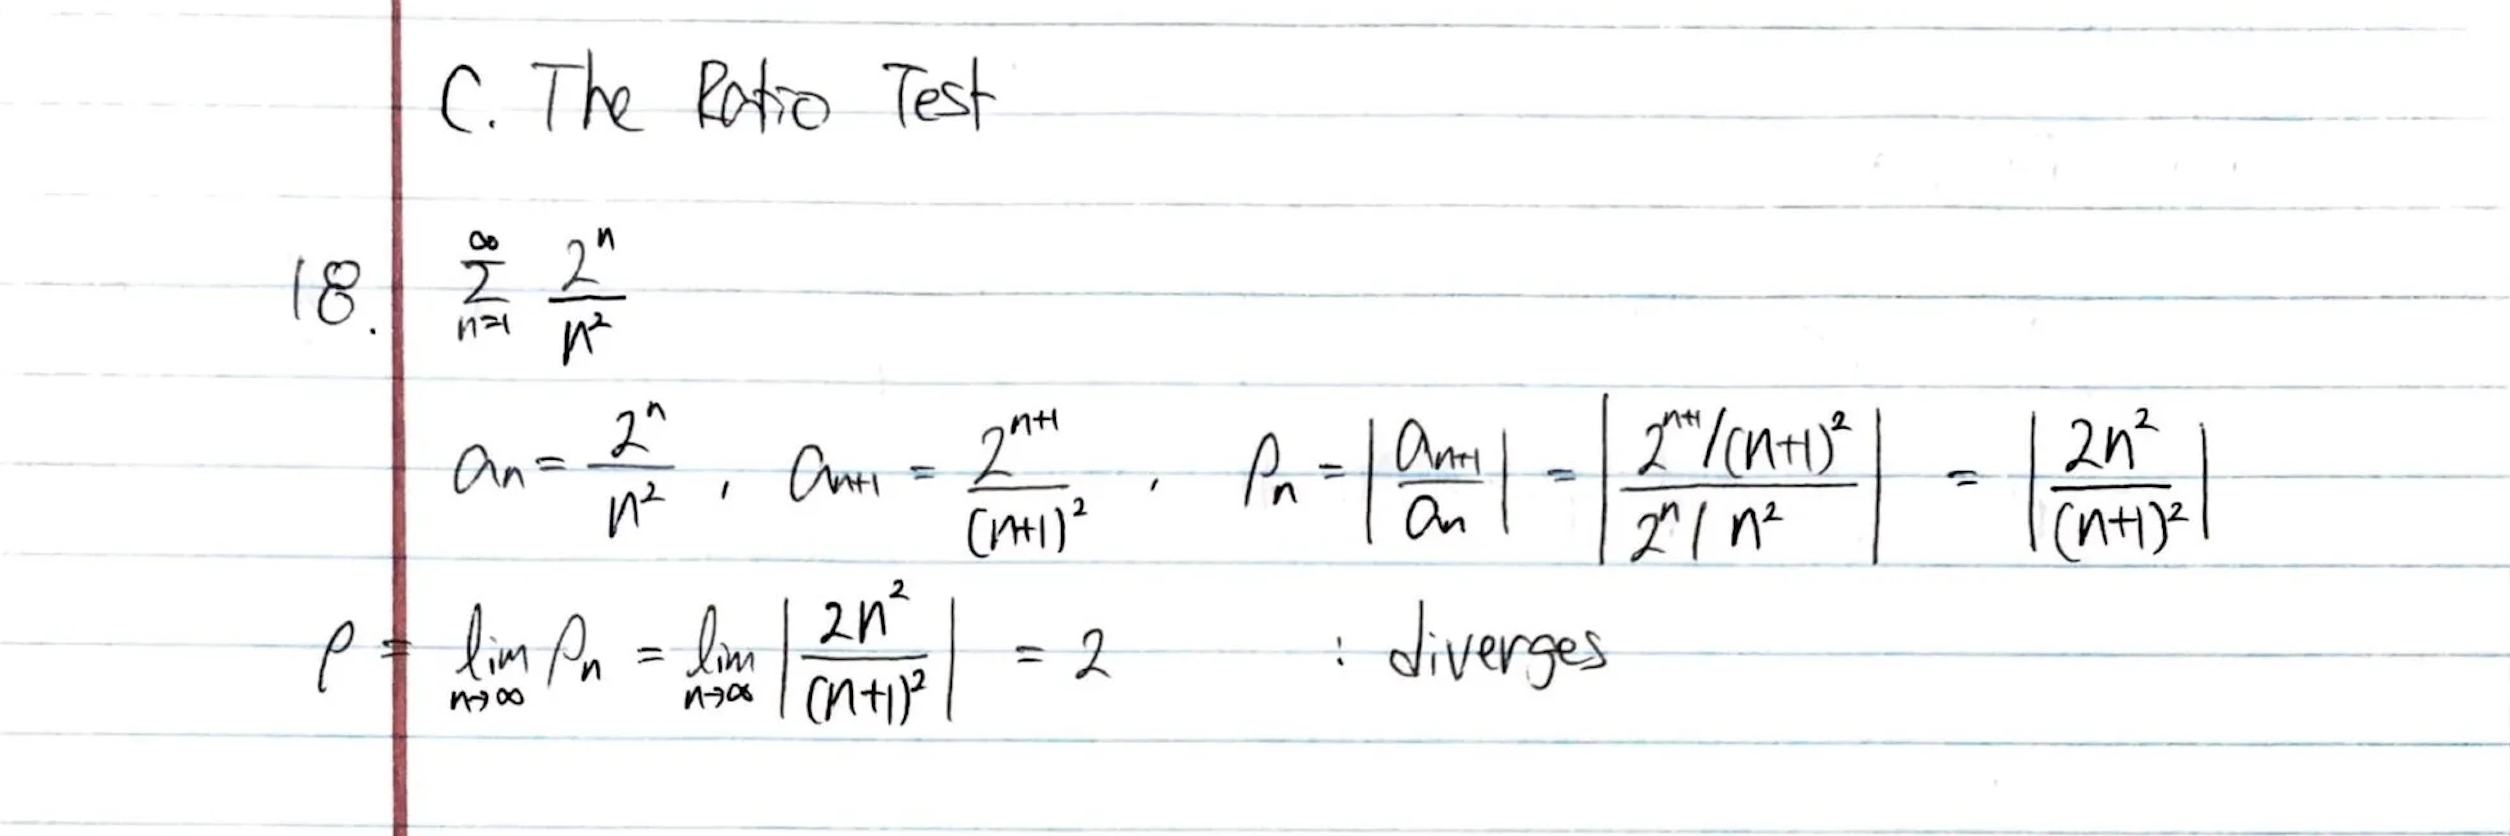 C. The Ratio Test
18. ∞ Σ n=1 2ⁿ / n²
aₙ = 2ⁿ/n² , aₙ₊₁ = 2ⁿ⁺¹/(n+1)² , ρₙ = |aₙ₊₁/aₙ| = |2ⁿ⁺¹/(n+1)² / 2ⁿ/n²| = |2n²/(n+1)²|
ρ = lim n→∞ ρₙ = lim n→∞ |2n²/(n+1)²| = 2 : diverges